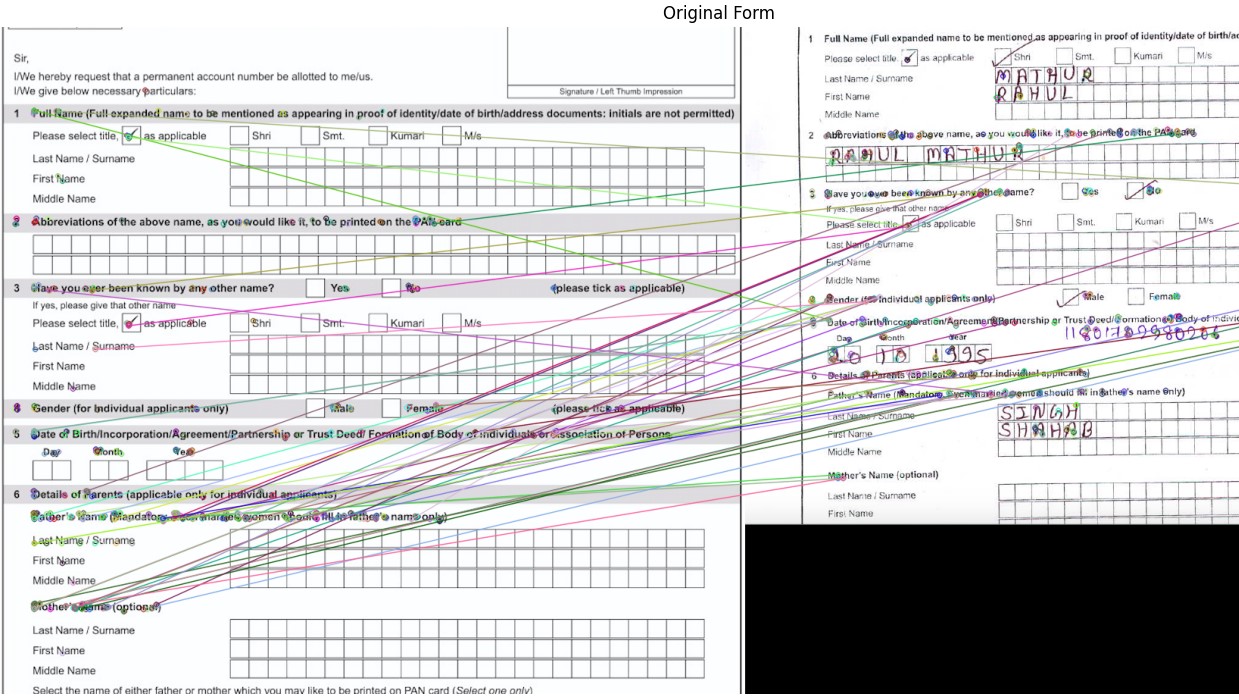 Original Form
Sir,
I/We hereby request that a permanent account number be allotted to me/us.
I/We give below necessary particulars:
Signature / Left Thumb Impression
1 Full Name (Full expanded name to be mentioned as appearing in proof of identity/date of birth/address documents: initials are not permitted)
Please select title, as applicable Shri Smt. Kumari M/s
Last Name / Surname
First Name
Middle Name
2 Abbreviations of the above name, as you would like it, to be printed on the PAN card
3 Have you ever been known by any other name? Yes No (please tick as applicable)
If yes, please give that other name
Please select title, as applicable Shri Smt. Kumari M/s
Last Name / Surname
First Name
Middle Name
Gender (for Individual applicants only) Male Female (please tick as applicable)
5 Date of Birth/Incorporation/Agreement/Partnership or Trust Deed/ Formation of Body of individuals or association of Persons
Day Month Year
6 Details of Parents (applicable only for individual applicants)
Father's Name (Mandatory. Even married women should fill in father's name only)
Last Name / Surname
First Name
Middle Name
Mother's Name (optional)
Last Name / Surname
First Name
Middle Name
Select the name of either father or mother which you may like to be printed on PAN card (Select one only)
1 Full Name (Full expanded name to be mentioned as appearing in proof of identity/date of birth/ad
Please select title, as applicable Shri Smt. Kumari M/s
Last Name / Surname MATHUR
First Name RAHUL
Middle Name
2 Abbreviations of the above name, as you would like it, to be printed on the PAN card
RAHUL MATHUR
3 Have you ever been known by any other name? Yes No
If yes, please give that other name
Please select title, as applicable Shri Smt. Kumari M/s
Last Name / Surname
First Name
Middle Name
Gender (for Individual applicants only) Male Female
Date of Birth/Incorporation/Agreement/Partnership or Trust Deed/ Formation of Body of individ
Day Month Year
10 1995
6 Details of Parents (applicable only for individual applicants)
Father's Name (Mandatory. Even married women should fill in father's name only)
Last Name / Surname SINGH
First Name SHAHAB
Middle Name
Mother's Name (optional)
Last Name / Surname
First Name